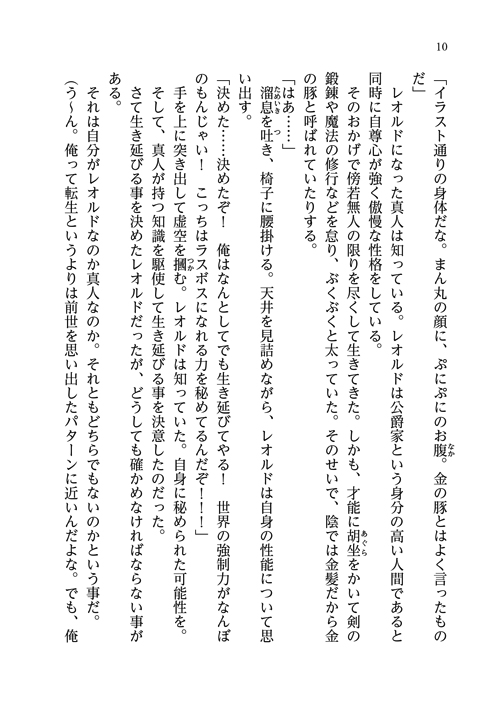 10
「イラスト通りの身体だな。まん丸の顔に、ぷにぷにのお腹。金の豚とはよく言ったもの
だ」
　レオルドになった真人は知っている。レオルドは公爵家という身分の高い人間であると
同時に自尊心が強く傲慢な性格をしている。
　そのおかげで傍若無人の限りを尽くして生きてきた。しかも、才能に胡坐をかいて剣の
鍛錬や魔法の修行などを怠り、ぶくぶくと太っていた。そのせいで、陰では金髪だから金
の豚と呼ばれていたりする。
「はあ……」
　溜息を吐き、椅子に腰掛ける。天井を見詰めながら、レオルドは自身の性能について思
い出す。
「決めた……決めたぞ！　俺はなんとしてでも生き延びてやる！　世界の強制力がなんぼ
のもんじゃい！　こっちはラスボスになれる力を秘めてるんだぞ！！！」
　手を上に突き出して虚空を摑む。レオルドは知っていた。自身に秘められた可能性を。
　そして、真人が持つ知識を駆使して生き延びる事を決意したのだった。
　さて生き延びる事を決めたレオルドだったが、どうしても確かめなければならない事が
ある。
　それは自分がレオルドなのか真人なのか。それともどちらでもないのかという事だ。
（う〜ん。俺って転生というよりは前世を思い出したパターンに近いんだよな。でも、俺